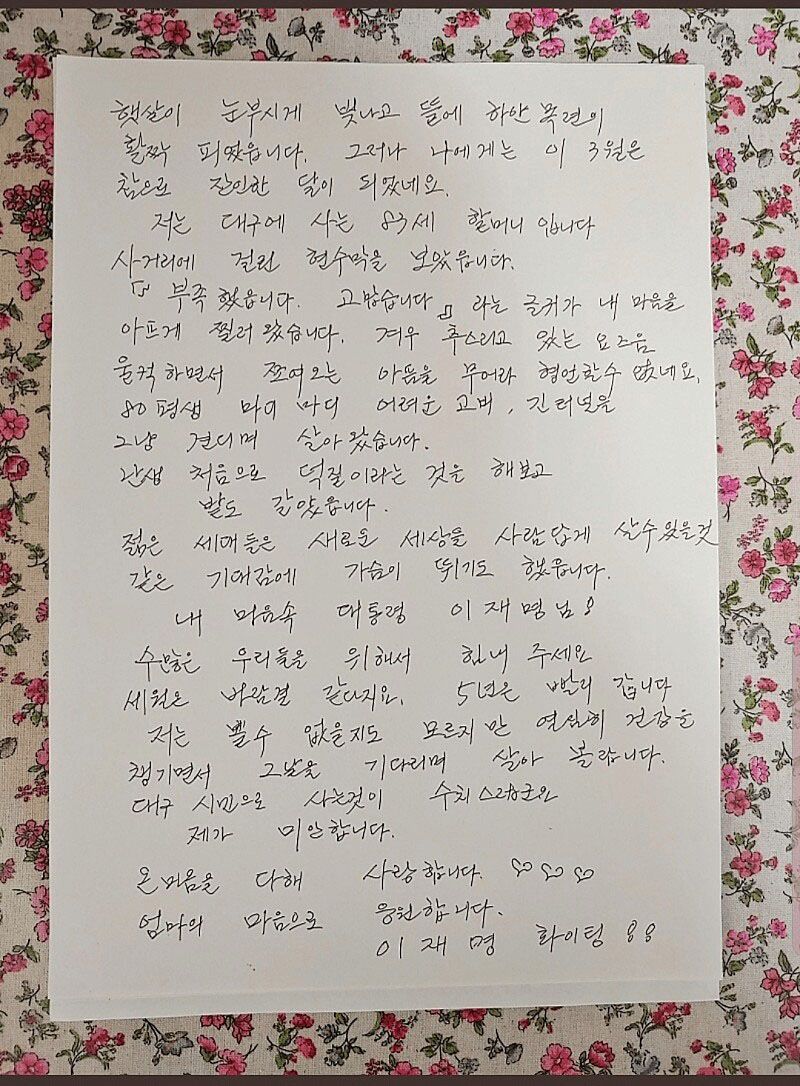 햇살이 눈부시게 빛나고 뜰에 하얀 목련이
활짝 피였읍니다. 그러나 나에게는 이 3월은
참으로 잔인한 달이 되였네요.
저는 대구에 사는 83세 할머니입니다
사거리에 걸린 현수막을 보았읍니다.
『부족했읍니다. 고맙습니다』라는 글귀가 내 마음을
아프게 찔러 왔습니다. 겨우 추스리고 있는 요즈음
울컥하면서 쪼여오는 아픔을 무어라 형언할수 없네요.
80평생 마디 마디 어려운 고비, 긴 터널을
그냥 견디며 살아왔습니다.
난생 처음으로 덕질이라는 것을 해보고
밭도 갈았읍니다.
젊은 세대들은 새로운 세상을 사람답게 살수있을것
같은 기대감에 가슴이 뛰기도 했읍니다.
내 마음속 대통령 이재명님!
수많은 우리들을 위해서 힘내 주세요
세월은 바람결 같다지요. 5년은 빨리 갑니다
저는 뽈수 없을지도 모르지만 열심히 건강을
챙기면서 그날을 기다리며 살아 볼랍니다.
대구 시민으로 사는것이 수치스럽군요
제가 미안합니다.
온마음을 다해 사랑합니다. ♡♡♡
엄마의 마음으로 응원합니다.
이재명 화이팅!!